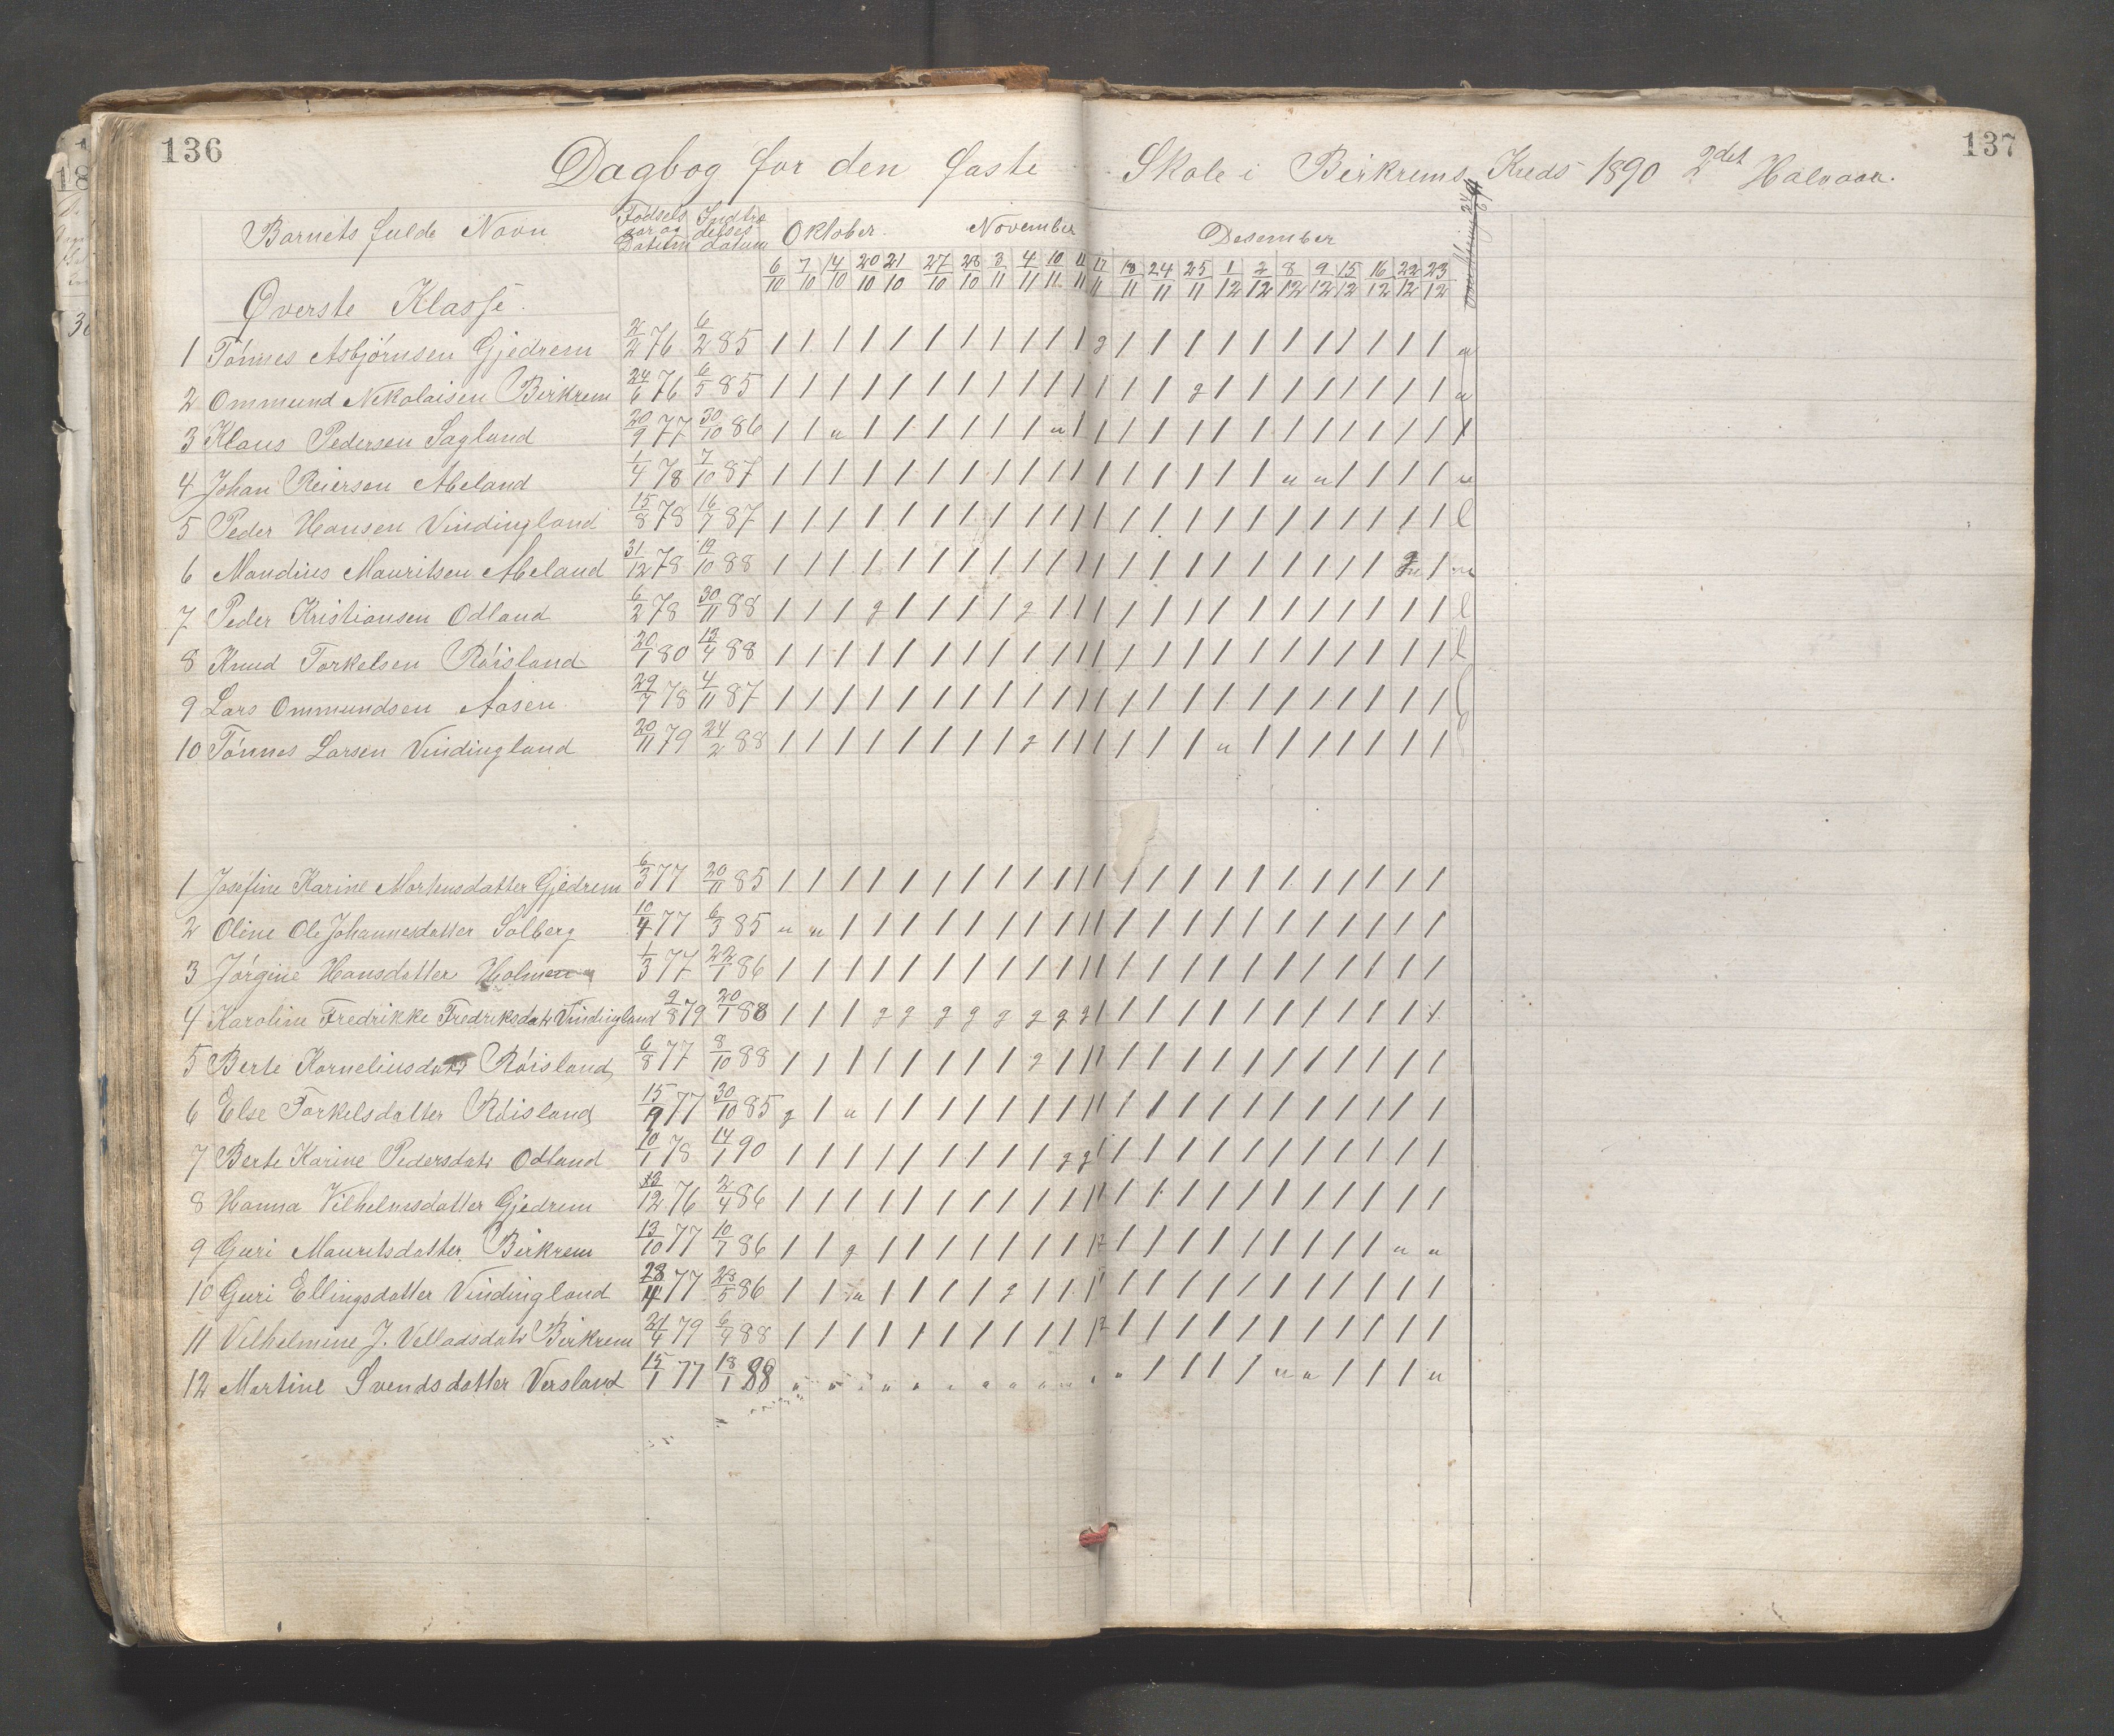 136
137
Dagbog for den faste Skole i Birkrems Kreds 1890 2det Halvaar.
Barnets fulde Navn Fødsels aar og Datum Indtrædelses datum Oktober November Desember
6/10 7/10 14/10 20/10 21/10 27/10 28/10 3/11 4/11 10/11 11/11 17/11 18/11 24/11 25/11 1/12 2/12 8/12 9/12 15/12 16/12 22/12 23/12
Øverste Klasse.
1 Tønnes Asbjørnsen Gjedrem 2/2 76 6/2 85 / / / / / / / / / / / g / / / / / / / / / / / u
2 Ommund Nikolaisen Birkrem 24/6 76 6/5 85 / / / / / / / / / / / / / / g / / / / / / / / u
3 Klaus Pedersen Sagland 20/9 77 30/10 86 / / u / / / / / / u / / / / / / / / / / / / /
4 Johan Reiersen Abeland 1/4 78 7/10 87 / / / / / / / / / / / / / / / / / u u / / / / u
5 Peder Hansen Vindingland 15/8 78 16/7 87 / / / / / / / / / / / / / / / / / / / / / / / l
6 Mandius Mauritsen Abeland 31/12 78 19/10 88 / / / / / / / / / / / / / / / / / / / / / /
7 Peder Kristiansen Odland 6/2 78 30/11 88 / / / g / / / / g / / / / / / / / / / / / / / l
8 Knud Torkelsen Røisland 20/1 80 13/4 88 / / / / / / / / / / / / / / / / / / / / / / / l
9 Lars Ommundsen Aasen 29/7 78 4/11 87 / / / / / / / / / / / / / / / / / / / / / / / l
10 Tønnes Larsen Vindingland 20/11 79 24/2 88 / / / / / / / / g / / / / / / u / / / / / / /
1 Josefine Karine Mortensdatter Gjedrem 6/3 77 20/11 85 / / / / / / / / / / / / / / / / / / / / / / /
2 Oline Ole Johannesdatter Solberg 10/4 77 6/3 85 u u / / / / / / / / / / / / / / / / / / / / /
3 Jørgine Hansdatter Holmen 1/3 77 22/1 86 / / / / / / / / / / / / / / / / / / / / / / /
4 Karoline Fredrikke Fredriksdatr Vindingland 9/8 79 20/1 88 / / / g g g g g g g g / / / / / / / / / / / /
5 Berte Korneliusdatr Røisland 6/8 77 8/10 88 / / / / / / / / g / / / / / / / / / / / / / /
6 Else Torkelsdatter Røisland 15/9 77 30/10 85 g / u / / / / / / / / / / / / / / / / / / / /
7 Berte Karine Pedersdatr Odland 10/1 78 14/1 90 / / / / / / / / / g g / / / / / / / / / / / /
8 Hanna Vilhelmsdatter Gjedrem 13/12 76 2/4 86 / / / / / / / / / / / / / / / / / / / / / / /
9 Guri Mauritsdatter Birkrem 13/10 77 10/7 86 / / g / / / / / / / / g / / / / / / / / / u u
10 Guri Ellingsdatter Vindingland 28/4 77 28/5 86 / / u / / / / g / / / / / / / / / / / / / / /
11 Vilhelmine J. Velladsdatr Birkrem 21/4 79 6/9 88 / / / / / / / / / / / g / / / / / / / / / / /
12 Martine Svendsdatter Versland 15/1 77 18/1 88 " " " " " " " " " " " " " / / / / u u / / / u